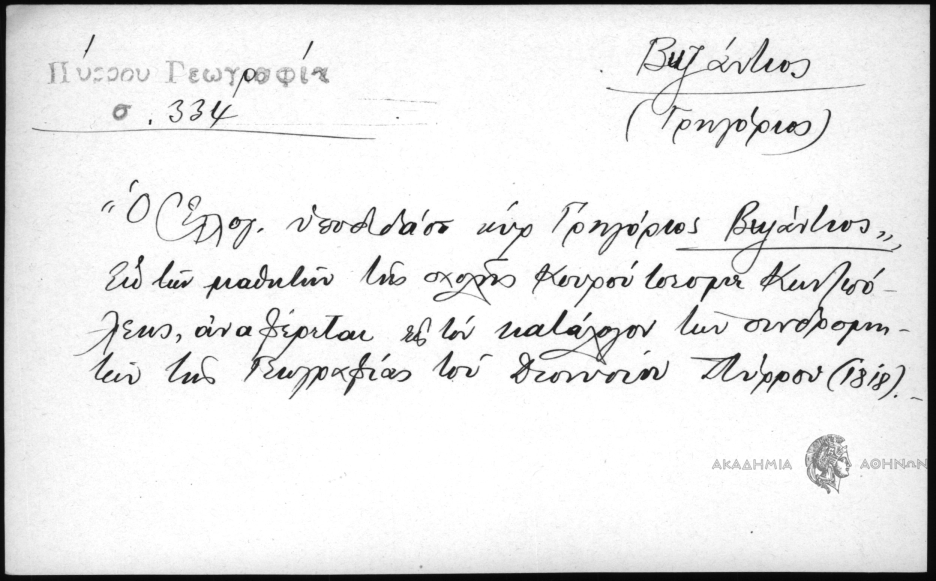 Πύρρου Γεωγραφία
σ. 334
Βυζάντιος
(Γρηγόριος)
"Ὁ Ἐλλογ. ὑποδιδάσκ κὺρ Γρηγόριος Βυζάντιος",
Ἐκ τῶν μαθητῶν τῆς σχολῆς Κουρού τσεσμε Κων)πό-
λεως, ἀναφέρεται εἰς τὸν κατάλογον τῶν συνδρομη-
τῶν τῆς Γεωγραφίας τοῦ Διονυσίου Πύρρου (1818).-
ΑΚΑΔΗΜΙΑ ΑΘΗΝΩΝ